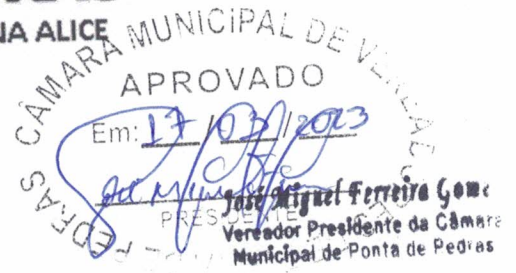 NA ALICE
CÂMARA MUNICIPAL DE VEREA
APROVADO
Em: 17 / 03 / 2023
PRESIDENTE
PEDRAS
José Miguel Ferreira Gome
Vereador Presidente da Câmara
Municipal de Ponta de Pedras